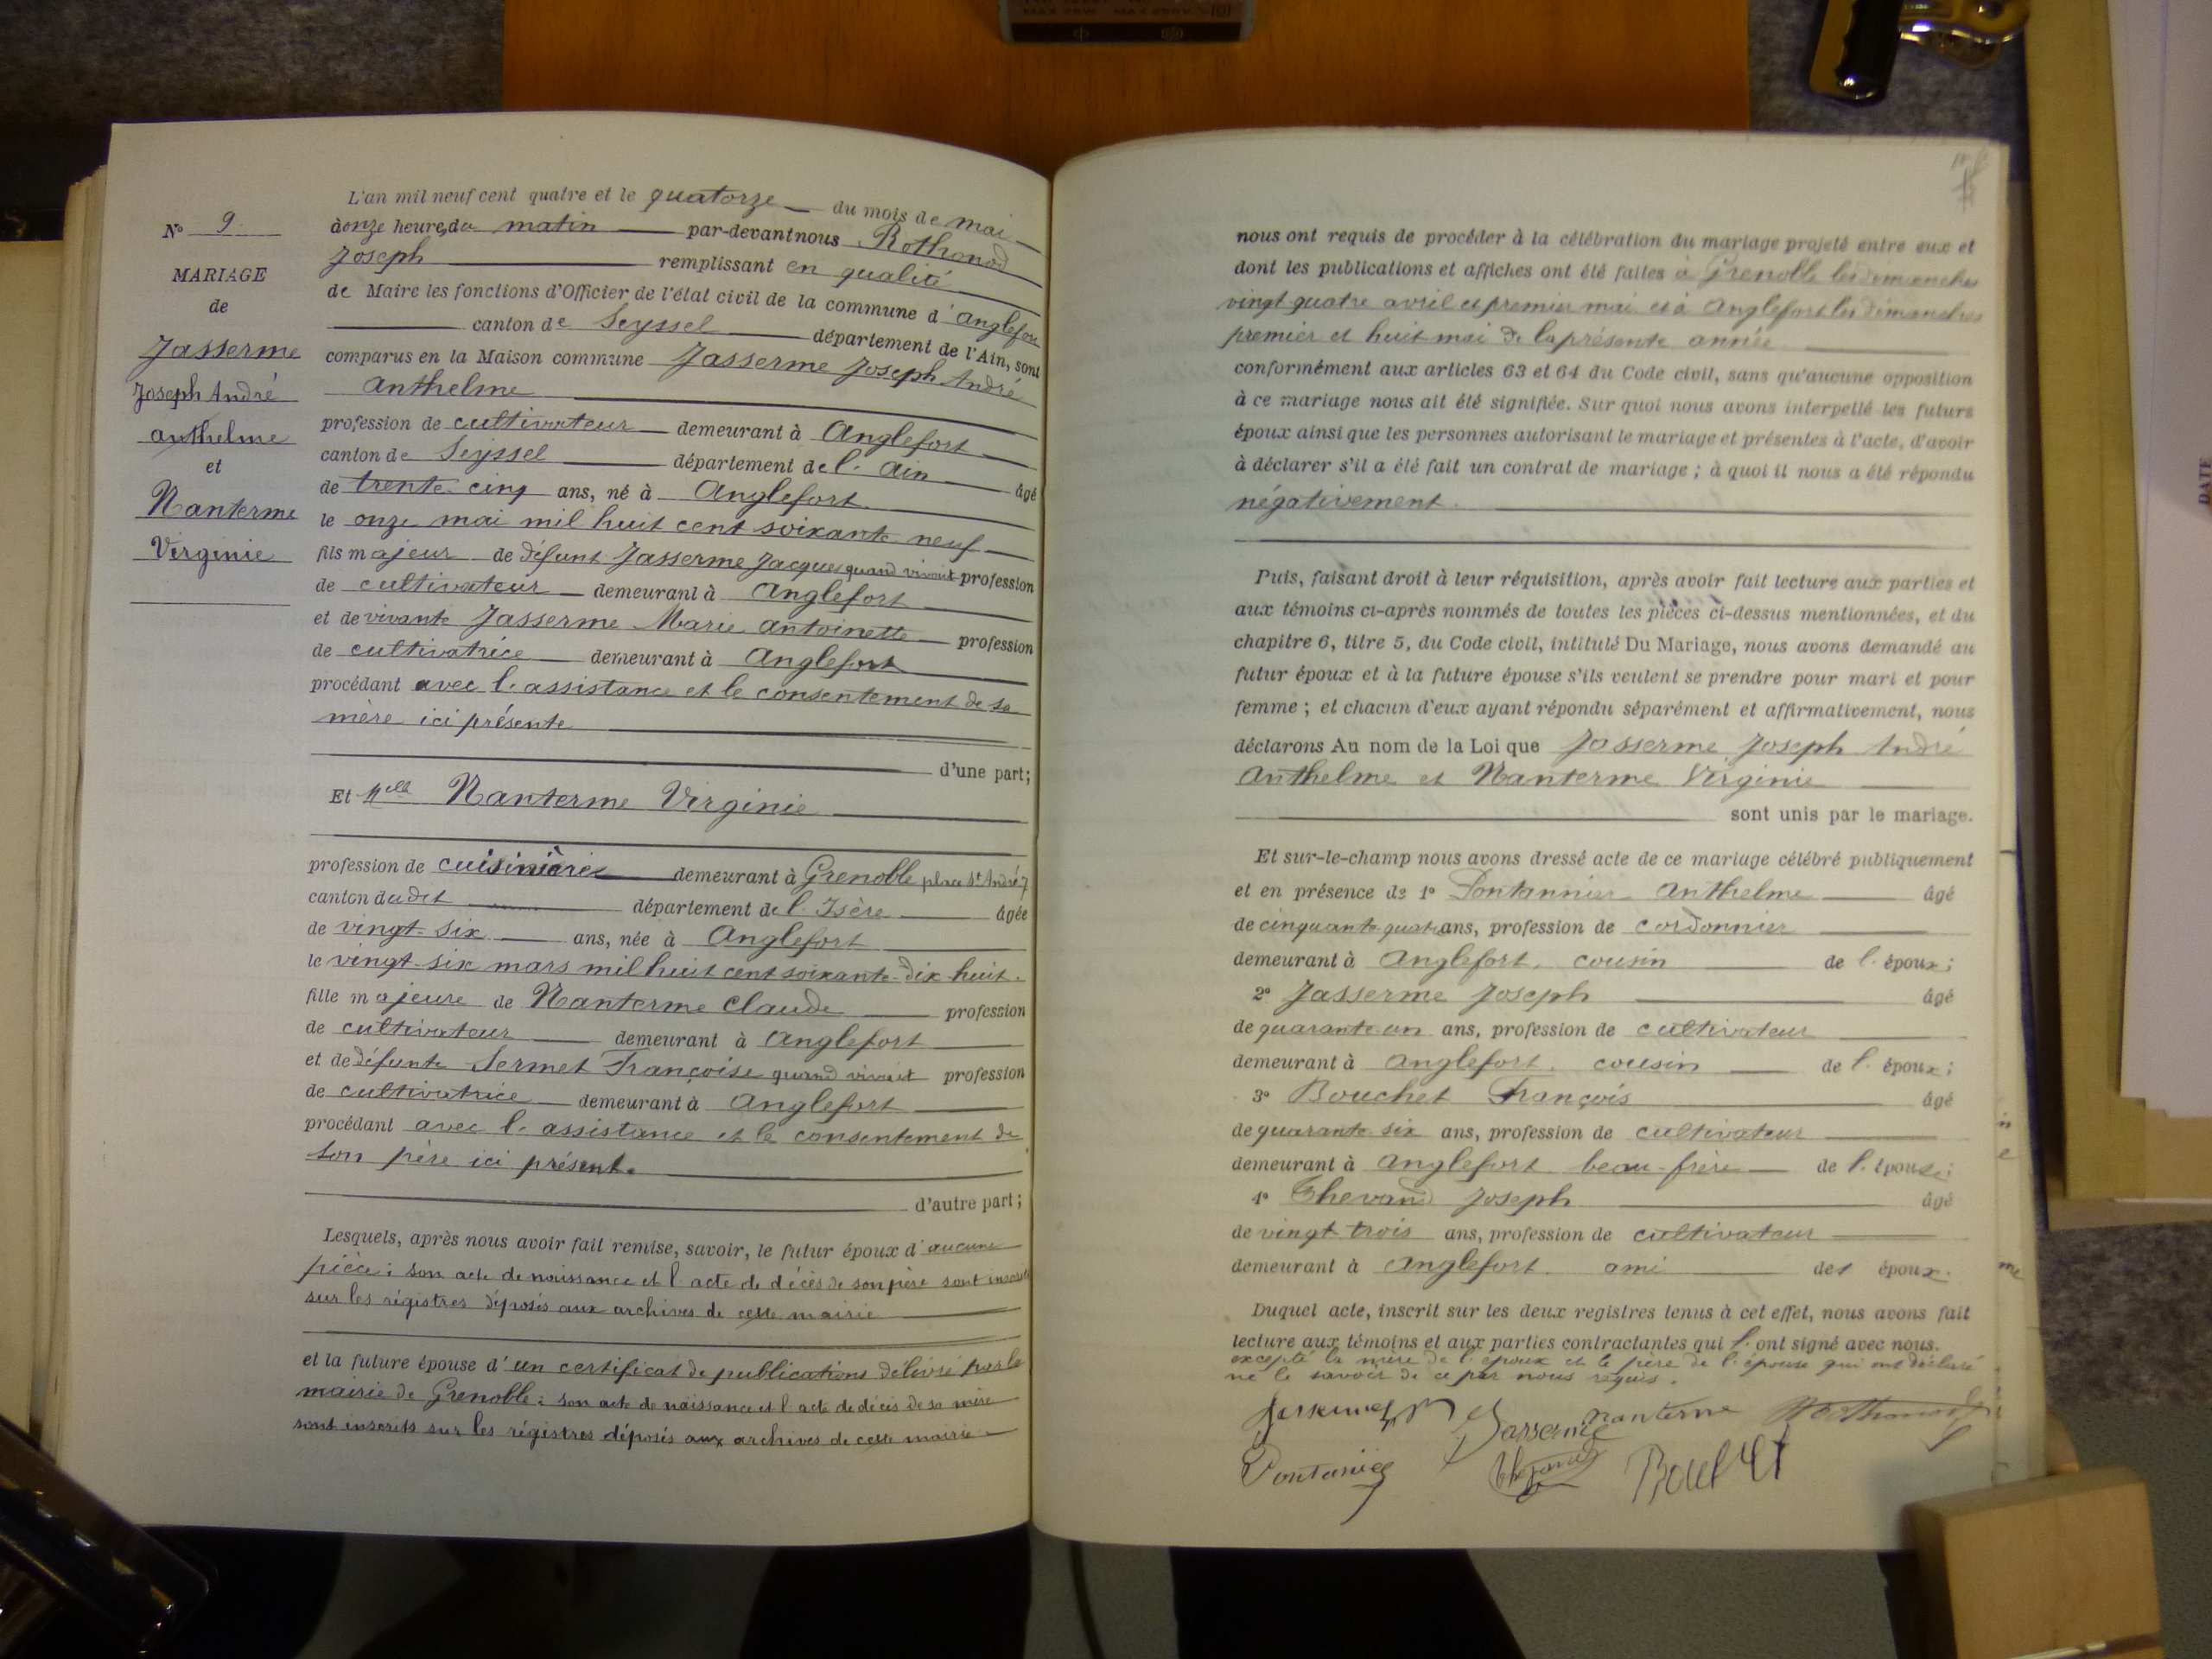 N° 9
MARIAGE
de
Jasserme
Joseph André
anthelme
et
Nanterme
Virginie
L'an mil neuf cent quatre et le quatorze du mois de mai
à onze heures du matin par-devant nous Rothonod
Joseph remplissant en qualité
de Maire les fonctions d'Officier de l'état civil de la commune d'Anglefort
canton de Seyssel département de l'Ain, sont
comparus en la Maison commune Jasserme Joseph André
anthelme
profession de cultivateur demeurant à Anglefort
canton de Seyssel département de l'Ain âgé
de trente-cinq ans, né à Anglefort
le onze mai mil huit cent soixante neuf
fils majeur de défunt Jasserme Jacques quand vivait profession
de cultivateur demeurant à Anglefort
et de vivante Jasserme Marie Antoinette profession
de cultivatrice demeurant à Anglefort
procédant avec l'assistance et le consentement de sa
mère ici présente
d'une part;
Et Melle Nanterme Virginie
profession de cuisinière demeurant à Grenoble place St André 7
canton dudit département de l'Isère âgée
de vingt-six ans, née à Anglefort
le vingt-six mars mil huit cent soixante-dix huit.
fille majeure de Nanterme Claude profession
de cultivateur demeurant à Anglefort
et de défunte Sermet Françoise quand vivait profession
de cultivatrice demeurant à Anglefort
procédant avec l'assistance et le consentement de
son père ici présent.
d'autre part;
Lesquels, après nous avoir fait remise, savoir, le futur époux d'aucune
pièce: son acte de naissance et l'acte de décès de son père sont inscrits
sur les régistres déposés aux archives de cette mairie
et la future épouse d'un certificat de publications délivré par la
mairie de Grenoble: son acte de naissance et l'acte de décès de sa mère
sont inscrits sur les régistres déposés aux archives de cette mairie
nous ont requis de procéder à la célébration du mariage projeté entre eux et
dont les publications et affiches ont été faites à Grenoble les dimanches
vingt-quatre avril et premier mai et à Anglefort les dimanches
premier et huit mai de la présente année
conformément aux articles 63 et 64 du Code civil, sans qu'aucune opposition
à ce mariage nous ait été signifiée. Sur quoi nous avons interpellé les futurs
époux ainsi que les personnes autorisant le mariage et présentes à l'acte, d'avoir
à déclarer s'il a été fait un contrat de mariage; à quoi il nous a été répondu
négativement.
Puis, faisant droit à leur réquisition, après avoir fait lecture aux parties et
aux témoins ci-après nommés de toutes les pièces ci-dessus mentionnées, et du
chapitre 6, titre 5, du Code civil, intitulé Du Mariage, nous avons demandé au
futur époux et à la future épouse s'ils veulent se prendre pour mari et pour
femme; et chacun d'eux ayant répondu séparément et affirmativement, nous
déclarons Au nom de la Loi que Jasserme Joseph André
Anthelme et Nanterme Virginie
sont unis par le mariage.
Et sur-le-champ nous avons dressé acte de ce mariage célébré publiquement
et en présence de 1° Pontannier Anthelme âgé
de cinquante-quatre ans, profession de cordonnier
demeurant à Anglefort, cousin de l'époux;
2° Jasserme Joseph âgé
de quarante un ans, profession de cultivateur
demeurant à Anglefort, cousin de l'époux;
3° Bouchet François âgé
de quarante-six ans, profession de cultivateur
demeurant à Anglefort beau-frère de l'épouse;
4° Thevand Joseph âgé
de vingt-trois ans, profession de cultivateur
demeurant à Anglefort ami des époux.
Duquel acte, inscrit sur les deux registres tenus à cet effet, nous avons fait
lecture aux témoins et aux parties contractantes qui l'ont signé avec nous.
excepté la mère de l'époux et le père de l'épouse qui ont déclaré
ne le savoir de ce par nous requis.
Jasserme nanterme
Pontanier
DATE